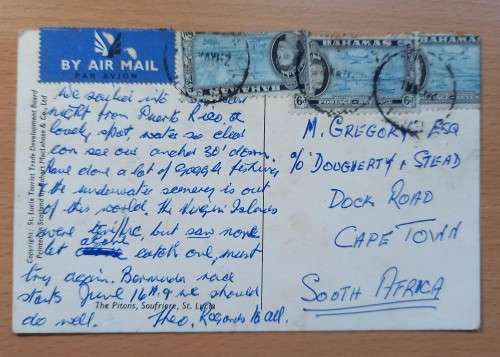 BY AIR MAIL
PAR AVION
BAHAMAS
BAHAMAS
BAHAMA
POSTAGE
6d
6d
We sailed into
night from Puerto Rico, a
lovely spot, water so clear
can see our anchor 30' down.
Have done a lot of Goggle fishing
the underwater scenery is out
of this world. The Virgin Islands
were terrific, but saw none
let alone catch one, must
try again. Bermuda race
starts June 16th & we should
do well. Theo, Regards to all.
M. GREGORY ESQ
c/o DOUGHERTY & STEAD
DOCK ROAD
CAPE TOWN
SOUTH AFRICA
The Pitons, Soufriere, St. Lucia
Copyright: St. Lucia Tourist Trade Development Board
Printed in Scotland by Robert MacLehose & Co. Ltd